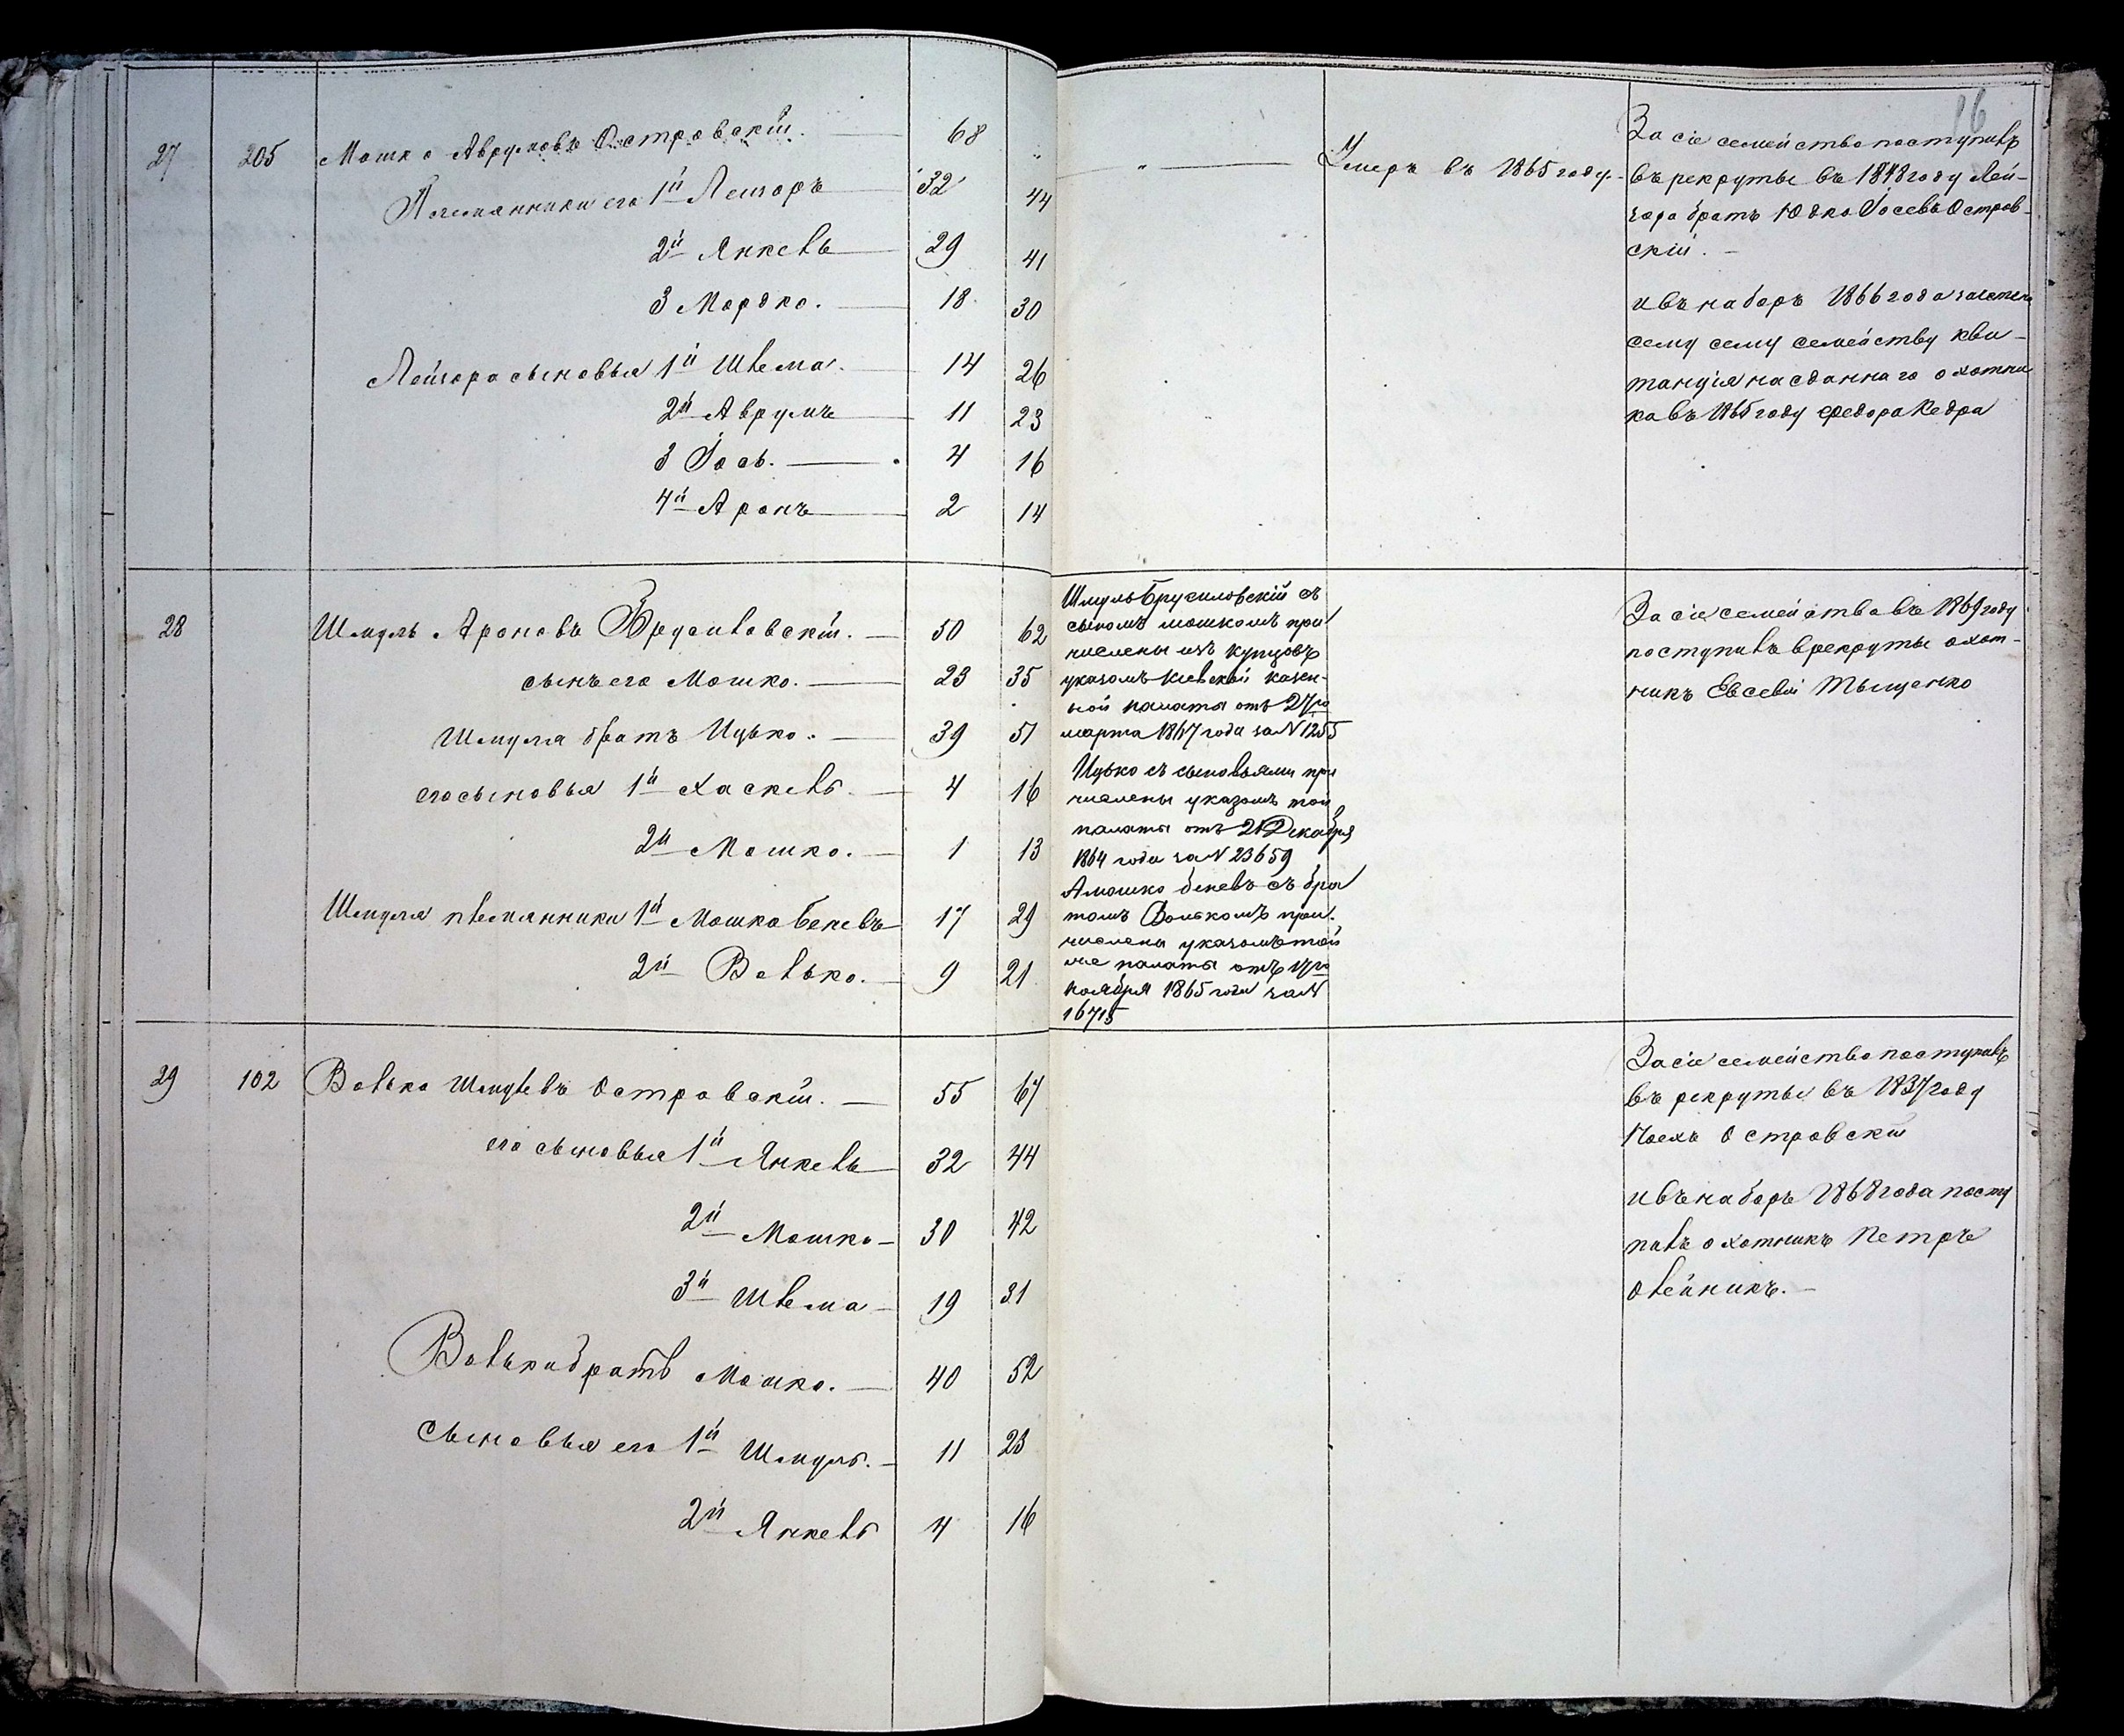 86
27 205 Мошко Аврумовъ Островскій. 68 „
Племянники его 1й Лейзоръ 32 44
2й Янкель 29 41
3 Мордко. 18 30
Лейзора сыновья 1й Шлема. 14 26
2й Аврумъ 11 23
3 Іось. 4 16
4й Аронъ 2 14
„ Умеръ въ 1865 году.
За сіе семейство поступилъ
въ рекруты въ 1848 году Лей-
зора братъ Юдко Іосевъ Остров-
скій.
и въ наборъ 1866 года зачтена
сему сему семейству кви-
танція на сданнаго охотни
ка въ 1865 году Федора Кедра
28 Шмуль Ароновъ Брусиловскій. 50 62
сынъ его Мошко. 23 35
Шмуля братъ Ицько. 39 51
его сыновья 1й Хаскель. 4 16
2й Мошко. 1 13
Шмуля племянники 1й Мошко Беневъ 17 29
2й Волько. 9 21
Шмуль Брусиловскій съ
сыномъ Мошкомъ при
числены изъ купцовъ
указомъ Кіевской казен-
ной палаты отъ 27го
марта 1867 года за N 1255
Ицько съ сыновьями при
числены указомъ той
палаты отъ 21 Декабря
1864 года за N 23659
А Мошко Беневъ съ бра
томъ Волькомъ при-
числены указомъ той
же палаты отъ 17го
ноября 1865 года за N
16715
За сіе семейство въ 1869 году
поступилъ в рекруты охот-
никъ Евсевій Тыщенко
29 102 Волько Шмулевъ Островскій. 55 67
его сыновья 1й Янкель 32 44
2й Мошко 30 42
3й Шлема 19 31
Волька братъ Мошко. 40 52
Сыновья его 1й Шмуль. 11 23
2й Янкель 4 16
За сіе семейство поступилъ
въ рекруты въ 1837 году
Островскій
и въ наборъ 1868 года посту
пилъ охотникъ Петръ
Олейникъ.